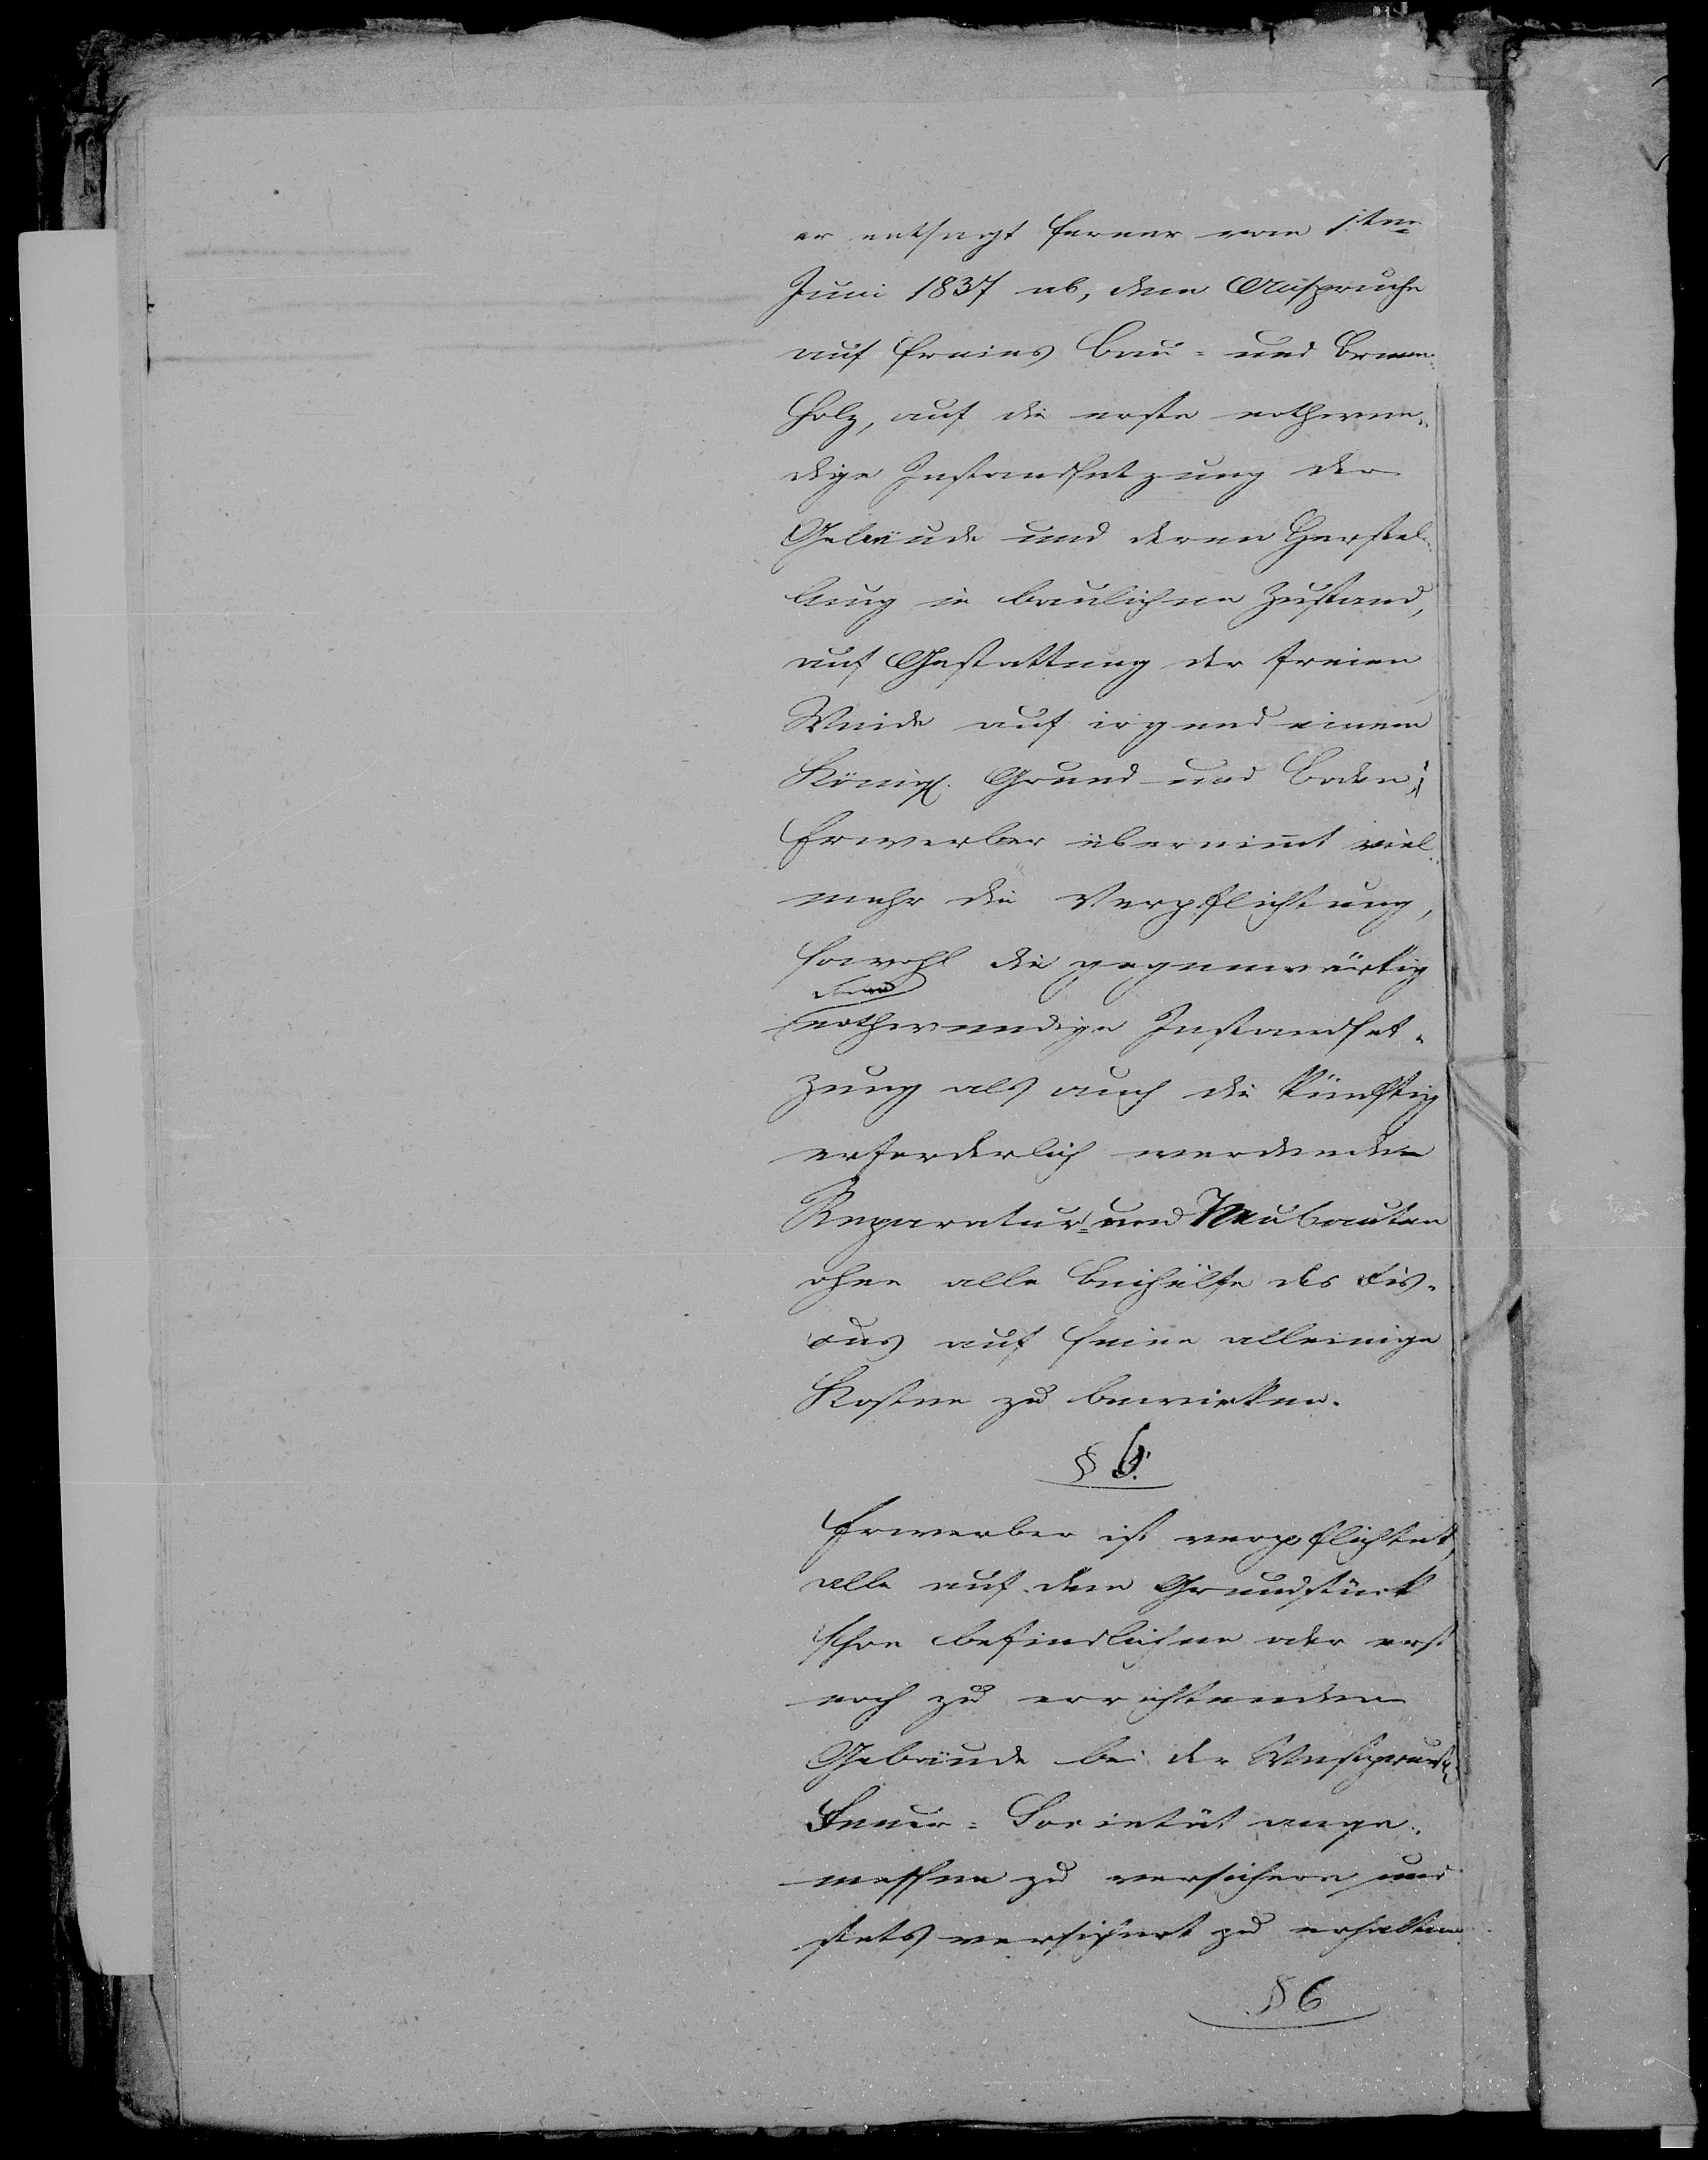 er entsagt ferner vom 1ten
Juni 1837 ab, dem Anspruche
auf freies Bau- und Brenn-
holz, auf die erste nothwen-
dige Instandsetzung der
Gebäude und deren Herstel-
lung in baulichen Zustand,
auf Gestattung der freien
Weide auf irgend einem
Königl. Grund und Boden;
Erwerber übernimmt viel-
mehr die Verpflichtung,
sowohl die gegenwärtig
nothwendige Instandset-
zung als auch die künftig
erforderlich werdenden
Reparatur- und Neubauten
ohne alle Beihülfe des Fis-
cus auf seine alleinige
Kosten zu bewirken.
§ 6.
Erwerber ist verpflichtet,
alle auf dem Grundstück
schon befindlichen oder erst
noch zu errichtenden
Gebäude bei der Westpreuß.
Feuer-Societät ange-
messen zu versichern und
stets versichert zu erhalten.
§ 6